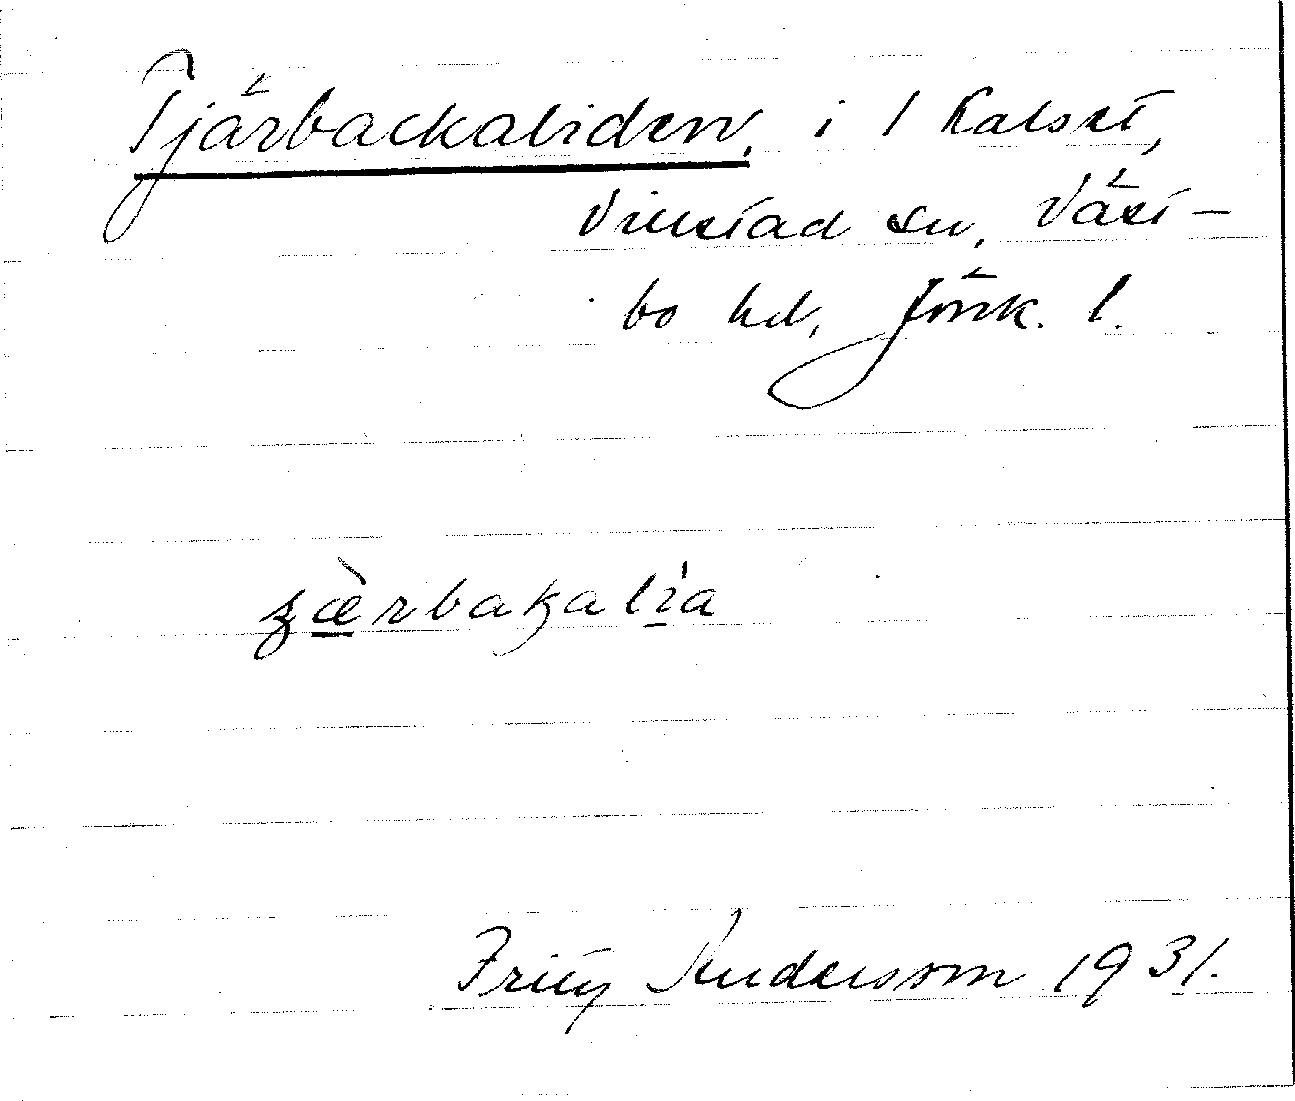 Tjärbackaliden, i 1 Kalset,
Villstad sn, Väst-
bo hd, Jönk. l.
ʒæ̀rbakalía
Fritz Andersson 1931.